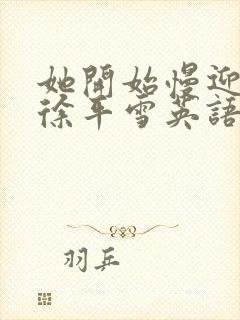 她開始慢迎
徐平雪英語
羽乒